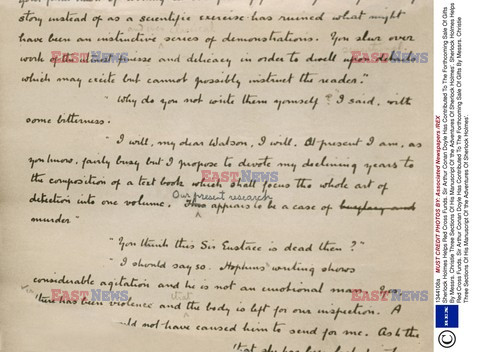 story instead of as a scientific exercise has ruined what might
have been an instructive series of demonstrations. You slur over
work of the utmost finesse and delicacy in order to dwell upon details
which may excite but cannot possibly instruct the reader."
Why do you not write them yourself? I said, with
some bitterness.
"I will, my dear Watson, I will. At present I am, as
you know, fairly busy but I propose to devote my declining years to
the composition of a text book which shall focus the whole art of
Our present research
detection into one volume. This appears to be a case of burglary and
murder"
"You think this Sir Eustace is dead then?"
"I should say so. Hopkins' writing shows
considerable agitation and he is not an emotional man. Yes,
there has been violence and the body is left for our inspection. A
would not have caused him to send for me. As to the
that she has been locked in
EASTNEWS
EASTNEWS
EASTNEWS
EASTNEWS
EASTNEWS
EASTNEWS
1344108a MUST CREDIT PHOTOS BY: Associated Newspapers /REX
Sherlock Holmes Helps Red Cross Funds. Sir Arthur Conan Doyle Has Contributed To The Forthcoming Sale Of Gifts
By Messrs. Christie Three Sections Of His Manuscript Of 'the Adventures Of Sherlock Holmes'. Sherlock Holmes Helps
Red Cross Funds. Sir Arthur Conan Doyle Has Contributed To The Forthcoming Sale Of Gifts By Messrs. Christie
Three Sections Of His Manuscript Of 'the Adventures Of Sherlock Holmes'.
REX